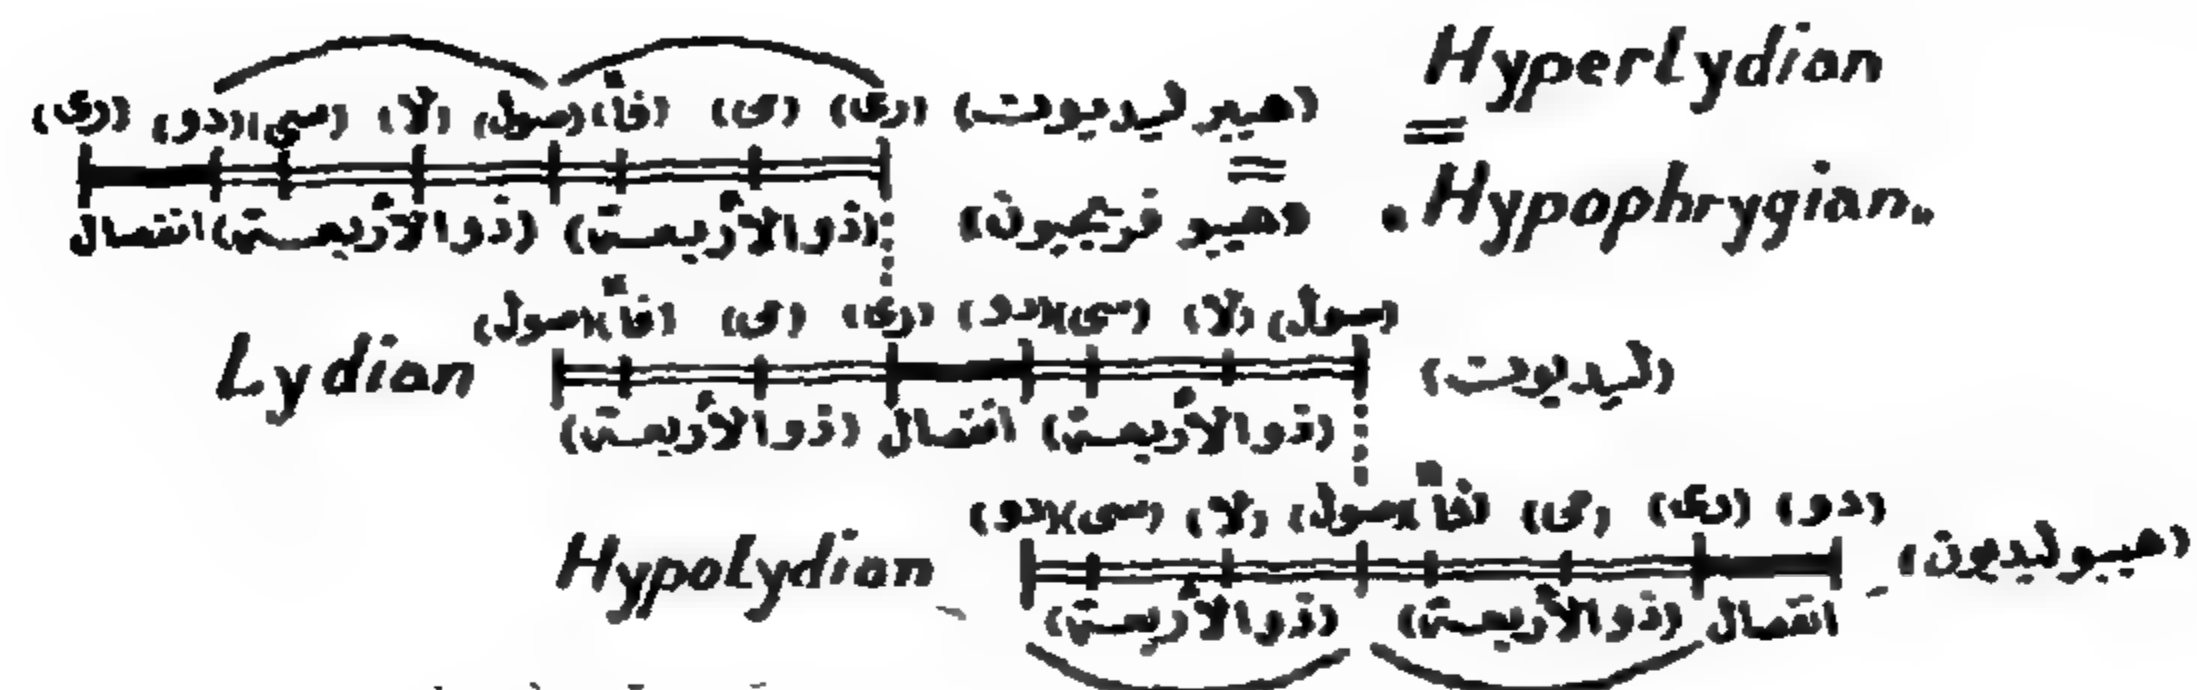 Hyperlydian
(ري) (دو)(سي) (لا) (صول)(فاً) (ي) (ري) (هيبر ليديون)
=
=
انفصال (ذو الأربعة) (ذو الأربعة) (هيبو فريجيون) "Hypophrygian"
(صول)(فاً) (ي) (ري) (دو)(سي) (لا) (صول)
Lydian (ليديون)
(ذو الأربعة) انفصال (ذو الأربعة)
(دو)(سي) (لا) (صول)(فاً) (مي) (ري) (دو)
Hypolydian (هيبو ليديون)
(ذو الأربعة) (ذو الأربعة) انفصال